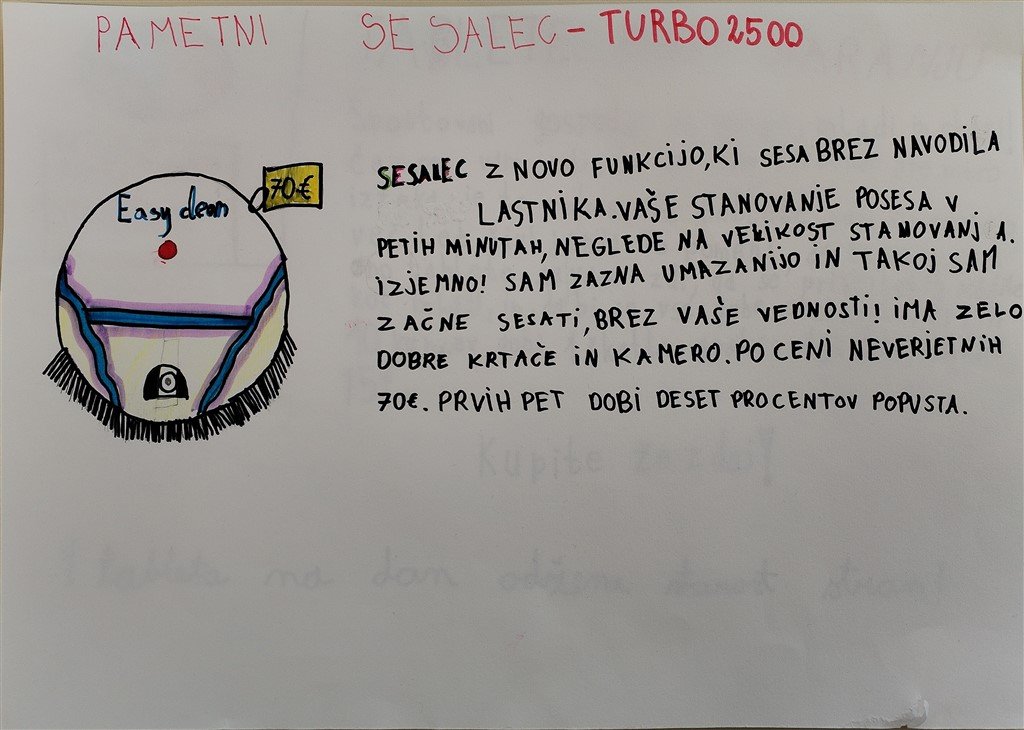 PAMETNI SESALEC - TURBO 2500
Easy clean
70€
SESALEC Z NOVO FUNKCIJO, KI SESA BREZ NAVODILA
LASTNIKA. VAŠE STANOVANJE POSESA V
PETIH MINUTAH, NEGLEDE NA VELIKOST STANOVANJA.
IZJEMNO! SAM ZAZNA UMAZANIJO IN TAKOJ SAM
ZAČNE SESATI, BREZ VAŠE VEDNOSTI! IMA ZELO
DOBRE KRTAČE IN KAMERO. PO CENI NEVERJETNIH
70€. PRVIH PET DOBI DESET PROCENTOV POPUSTA.